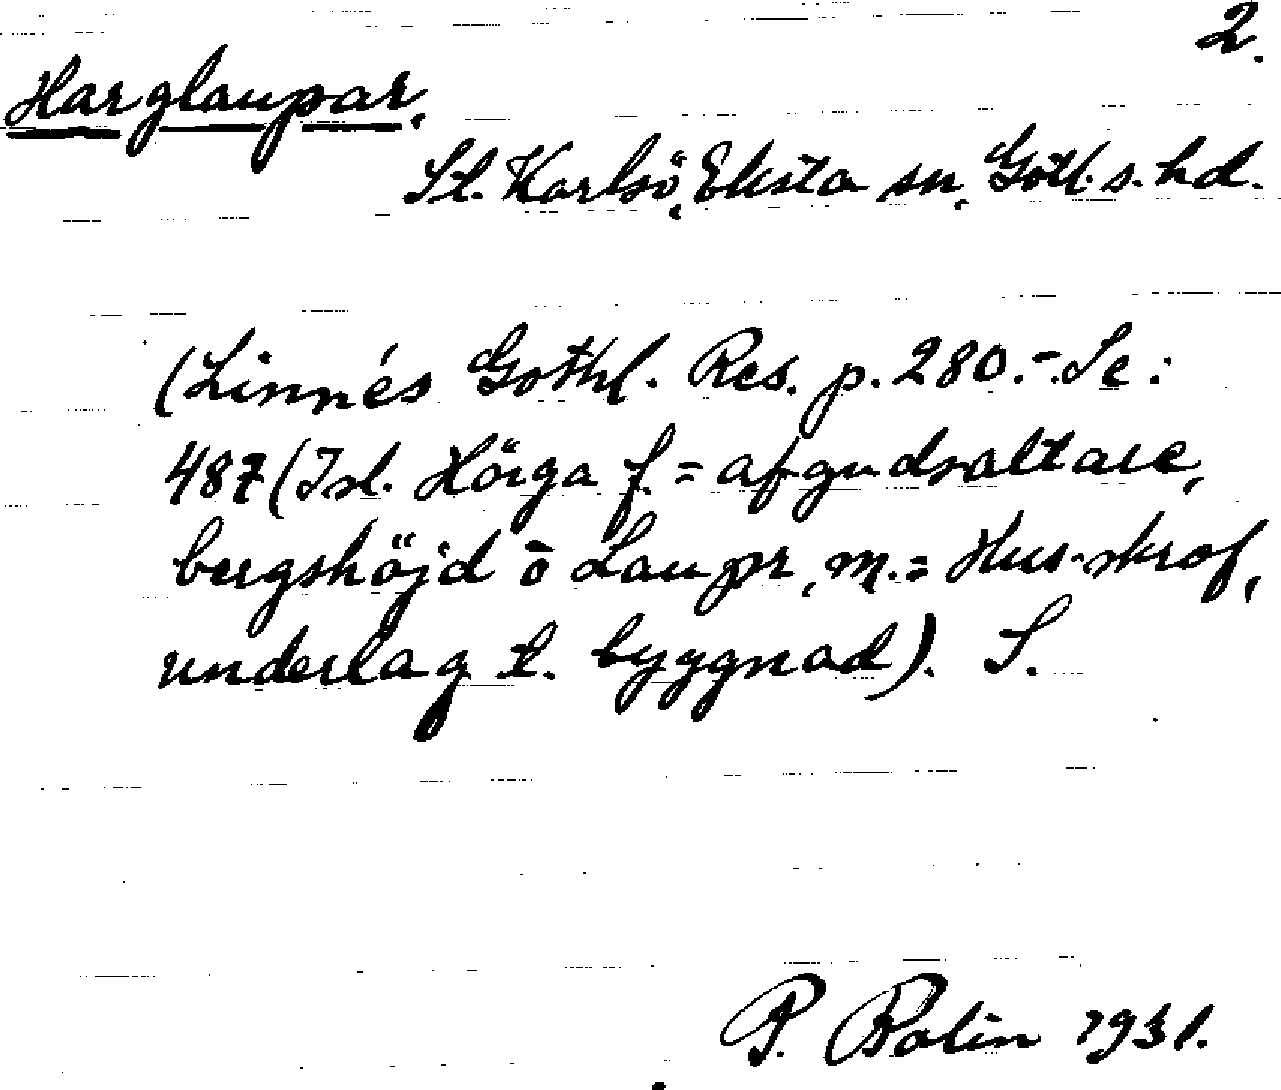 2.
Harglaupar.
St. Karlsö, Eksta sn, Gotl. s. hd.
(Linnés Gothl. Res. p. 280. - Se:
487 (Isl. Hörga f. = afgudsaltare,
bergshöjd o Laupr, m. = Hus-skrof,
underlag t. byggnad). S.
P. Bolin 1931.